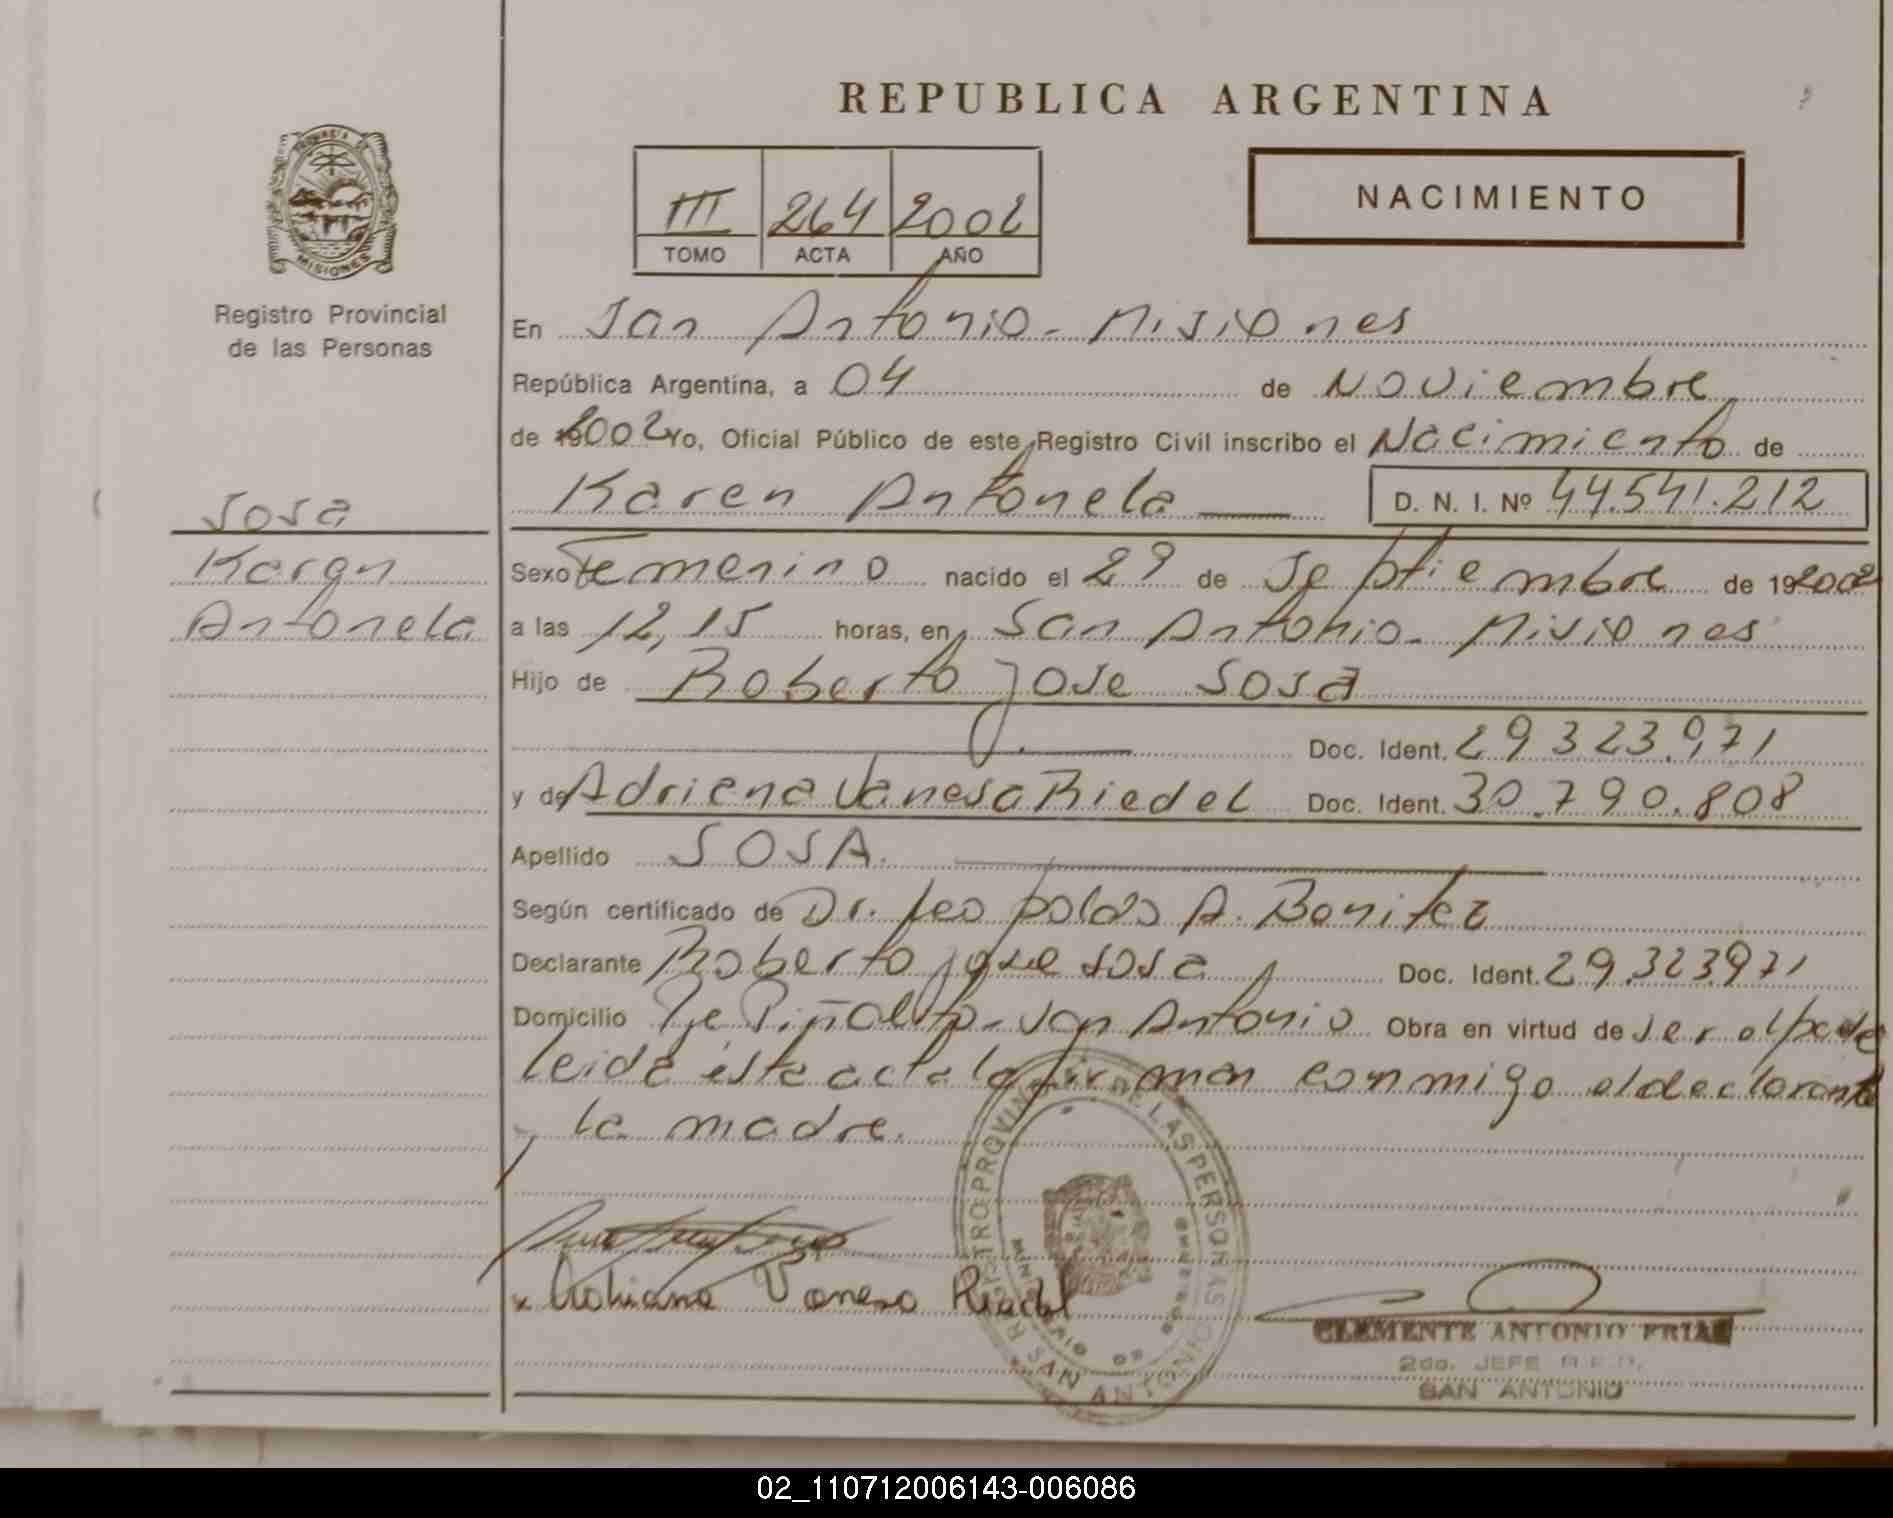 REPUBLICA ARGENTINA
PROVINCIA DE
MISIONES
Registro Provincial
de las Personas
III 264 2002
TOMO ACTA AÑO
NACIMIENTO
En San Antonio - Misiones
República Argentina, a 04 de Noviembre
de 2002 Yo, Oficial Público de este Registro Civil inscribo el Nacimiento de
Karen Antonela D. N. I. Nº 44.541.212
Sosa
Karen
Antonela
Sexo Femenino nacido el 29 de Septiembre de 19 2002
a las 12,15 horas, en San Antonio - Misiones
Hijo de Roberto Jose Sosa
Doc. Ident. 29.323.971
y de Adriana Vanesa Riedel Doc. Ident. 30.790.808
Apellido SOSA.
Según certificado de Dr. Leopoldo A. Benitez
Declarante Roberto Jose Sosa Doc. Ident. 29.323.971
Domicilio Pje Piñalito - San Antonio Obra en virtud de ser el padre
leida esta acta la firman conmigo el declarante
y la madre.
REGISTRO PROVINCIAL DE LAS PERSONAS
SAN ANTONIO
x Adriana Vanesa Riedel
CLEMENTE ANTONIO FRIAS
2do. JEFE R.P.P.
SAN ANTONIO
02_110712006143-006086